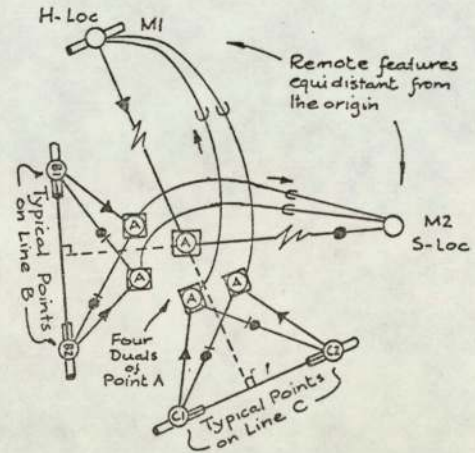 H-Loc
M1
Remote features
equidistant from
the origin
B1
Typical Points
on Line B
B2
A
A
A
A
A
M2
S-Loc
Four
Duals
of
Point A
C1
C2
Typical Points
on Line C